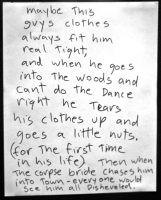 maybe This
guys clothes
always fit him
real Tight,
and when he goes
into the woods and
cant do the Dance
right he Tears
his clothes up and
goes a little nuts.
(for The first time
in his life) Then when
The corpse bride chases him
into Town - everyone would
see him all Disheveled.